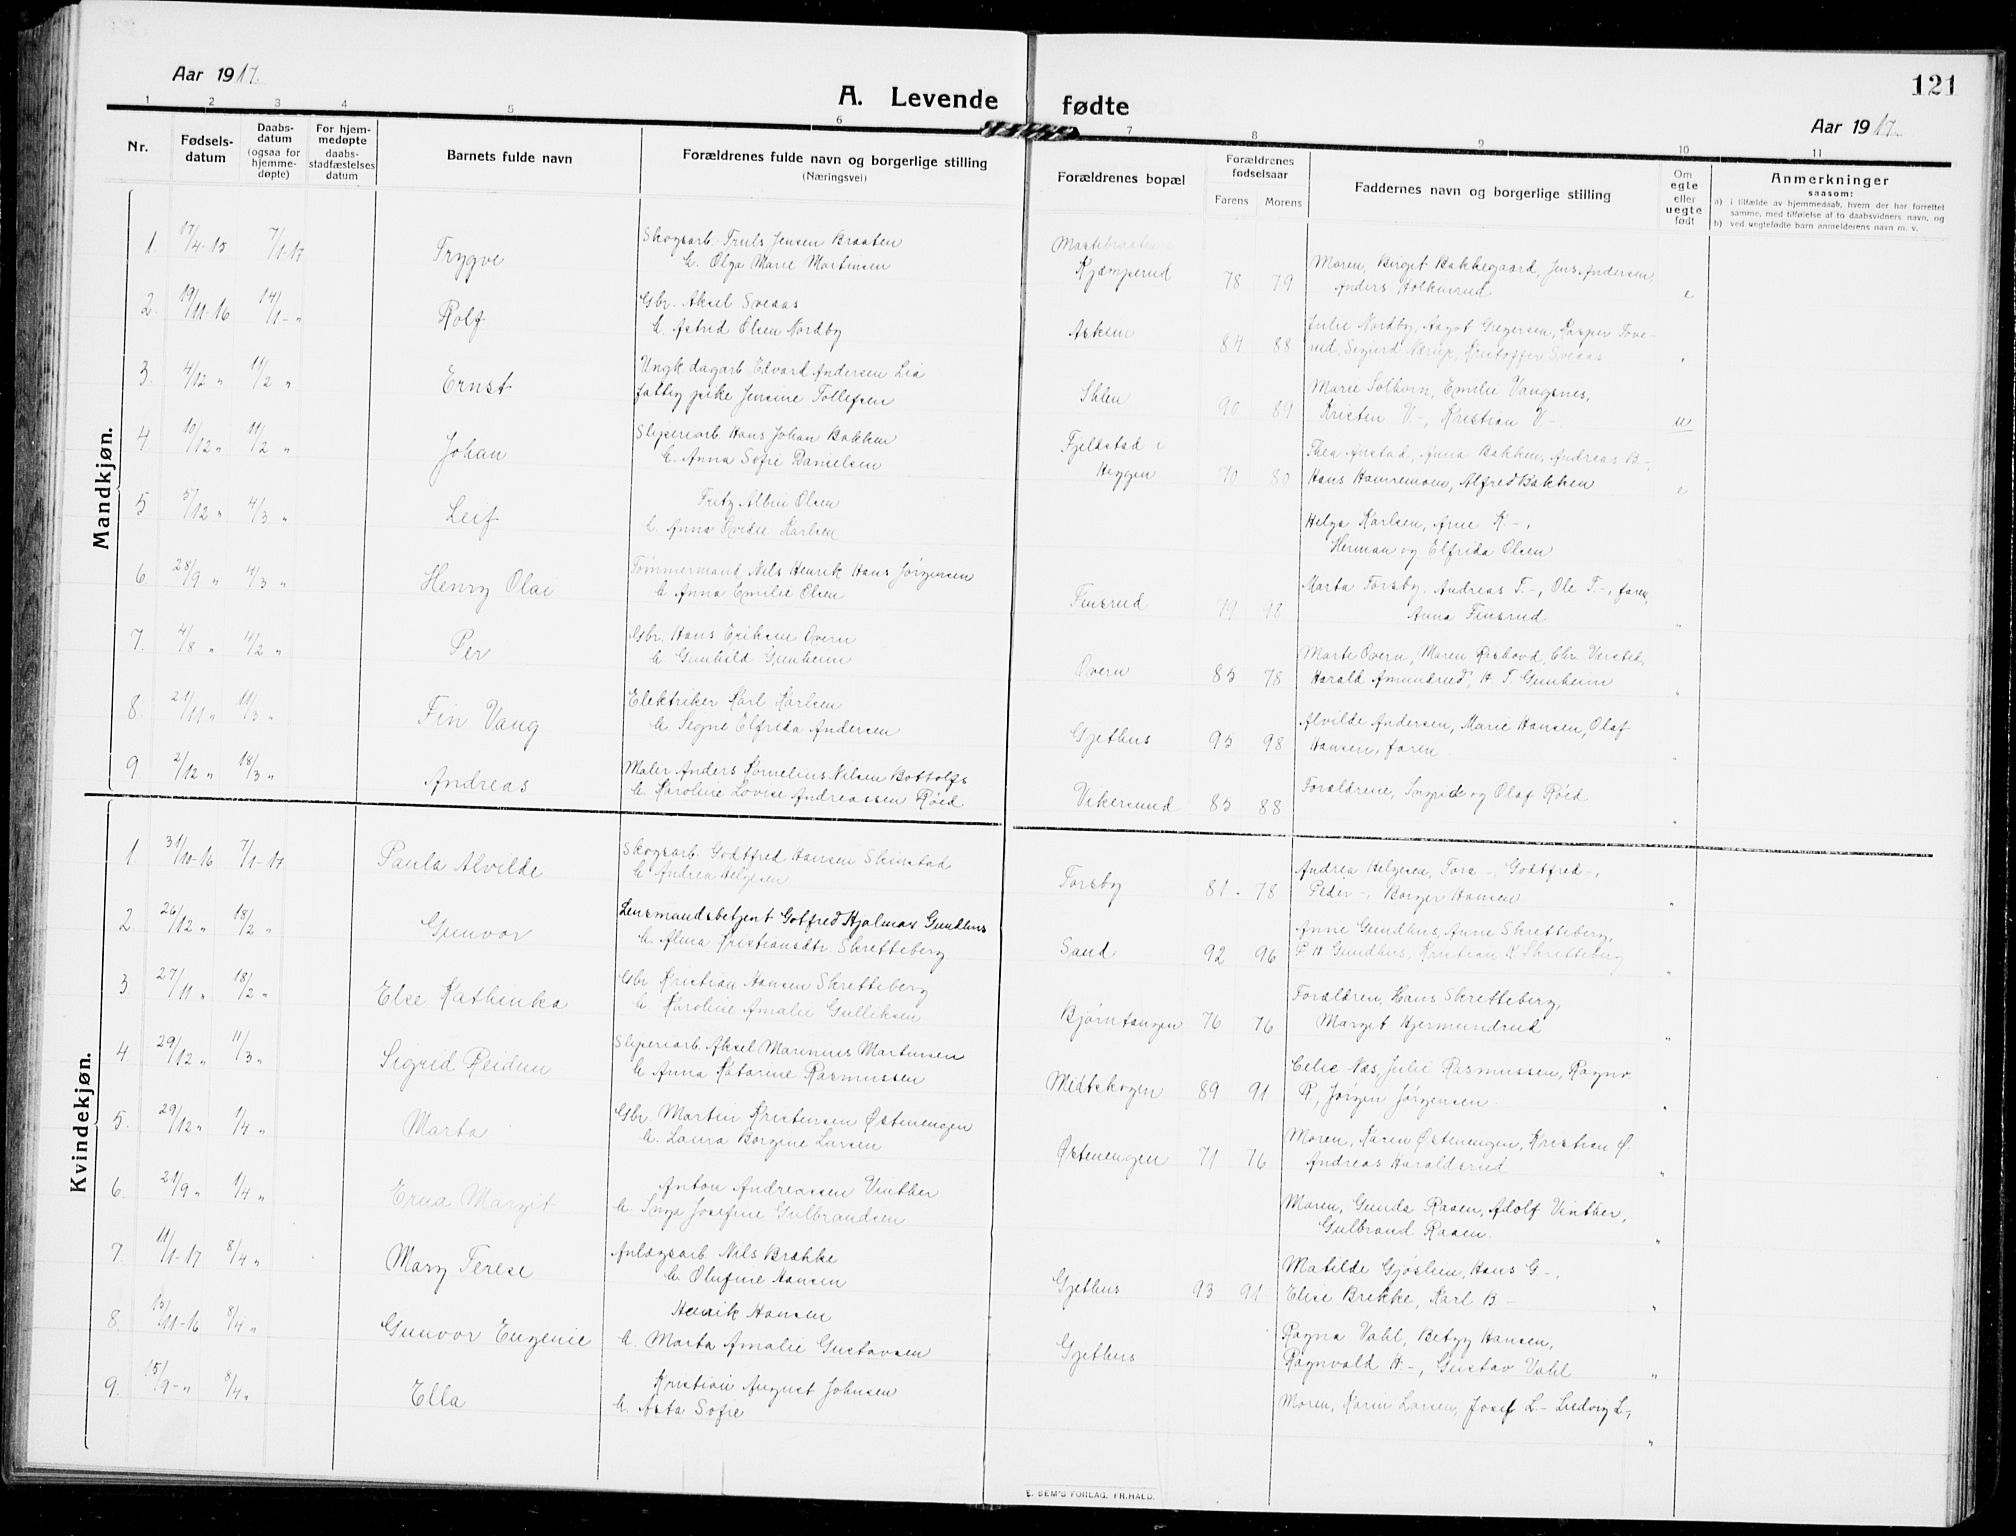 Aar 1917.
A. Levende fødte
121
Aar 1917.
1 2 3 4 5 6 7 8 9 10 11
Nr.
Fødsels-
datum
Daabs-
datum
(ogsaa for
hjemme-
døpte)
For hjem-
medøpte
daabs-
stadfæstelses
datum
Barnets fulde navn
Forældrenes fulde navn og borgerlige stilling
(Næringsvei)
Forældrenes bopæl
Forældrenes
fødselsaar
Farens Morens
Faddernes navn og borgerlige stilling
Om
egte
eller
uegte
født
Anmerkninger
saasom:
a) i tilfælde av hjemmedaab, hvem der har forrettet
samme, med tilføielse af to daabsvidners navn, og
b) ved uegtefødte barn anmelderens navn m. v.
Mandkjøn.
1. 17/4-15 7/1-17 Trygve
Skogsarb. Truls Jensen Braaten
h. Olga Marie Martinsen
Kjæmperud 78 79
Moren, Birget Bakkegaard, Jens Andersen,
Anders Holkerud e
2. 19/11-16 14/1-" Rolf
Gbr. Aksel Sveaas
h. Astrid Olsen Nordby
Asken 84 88
Julie Nordby, Aagot Gregersen, Kasper Tove-
rud, Sigurd Nærup, Kristoffer Sveaas "
3. 4/12 " 11/2 " Ernst
Ungk dagarb Edvard Andersen Lia
fattig pike Jensine Tollefsen
90 89
Marie Solhorn, Emilie Vangsnes,
Kristen V-, Kristian V-. u
4 10/12 " 11/2 " Johan
Sliperiarb Hans Johan Bakken
h. Anna Sofie Danielsen
Fjeldstad i
Heggen 70 80
Thea Anstad, Anna Bakken, Andreas B-,
Hans Hannemoen, Alfred Bakken e
5 5/12 " 4/3 " Leif
Fritz Albin Olsen
h. Anna Karlsen
Helga Karlsen, Arne K-,
Herman og Elfrida Olsen "
6. 28/9 " 4/3 " Henry Olai
Tømmermand Nils Henrik Hans Jørgensen
h Anna Emilie Olsen
Finsrud 79 98
Marta Forsby, Andreas F-, Ole F-, faren,
Anna Finsrud "
7. 4/8 " 4/2 " Per
Gbr. Hans Eriksen Overn
h Gunhild Gunheim
Overn 85 78
Marte Overn, Maren Chr.
Harald Amundrud, H. T. Gunheim "
8. 21/11 " 11/3 " Fin Vang
Elektriker Karl Karlsen
h. Signe Elfrida Andersen
Gjethus 95 98
Alvilde Andersen, Marie Hansen, Olaf
Hansen, faren "
9 2/12 " 18/3 " Andreas
Maler Anders Kornelius Nilsen Bottolfs
h. Karoline Lovise Andreassen Røed
Vikersund 85 88
Forældrene, Ingrid og Olaf Røed "
Kvindekjøn.
1 31/10-16 7/1-17 Paula Alvilde
Skogsarb. Godtfred Hansen Skinstad
h. Andrea Helgesen
Forsby 81 - 78
Andrea Helgesen, Tora -, Godtfred -,
Peder -, Borger Hansen "
2. 26/12 " 18/2 " Gunvor
Lensmandsbetjent Gotfred Hjalmar Gundhus
h. Alma Kristiansdtr Skretteberg
Sand 92 96
Anne Gundhus, Anne Skretteberg,
P H Gundhus, Kristian K Skretteberg "
3 27/11 " 18/2 " Else Kathinka
Gbr Kristian Hansen Skretteberg
h Karoline Amalie Gulliksen
Bjørntangen 76 76
Forældren, Hans Skretteberg,
Margit Hjermundrud "
4. 29/12 " 11/3 " Sigrid Reidun
Sliperiarb. Aksel Marinius Martinsen
h. Anna Katarine Rasmussen
Midtskogen 89 91
Celie Næs, Julie Rasmussen, Ragnv.
R, Jørgen Jørgensen. "
5. 29/12 " 1/4 " Marta
Gbr. Martin Kristensen Østenengen
h. Laura Borgine Larsen
Østenengen 71 76
Moren, Karen Østenengen, Kristian Ø.
Andreas Haraldsrud "
6. 21/9 " 1/4 " Erna Margit
Anton Andreassen Vinther
h. Inga Josefine Gulbrandsen
Moren, Gunda Raaen, Adolf Vinther,
Gulbrand Raaen. "
7. 11/1-17 8/4 " Mary Terese
Anlægsarb Nils Brække
h. Olufine Hansen
Gjethus 93 91
Matilde Gjøslien, Hans G-,
Elise Brekke, Karl B- "
8. 15/11-16 8/4 " Gunvor Eugenie
Henrik Hansen
h. Marta Amalie Gustavsen
Gjethus
Ragna Vahl, Betzy Hansen,
Ragnvald H-, Gustav Vahl "
9. 15/9-" 8/4 " Ella
Kristian August Johnsen
h. Asta Sofie
Moren, Karin Larsen, Josef L- Ludvig L-, "
E. SEM'S FORLAG, FR.HALD.